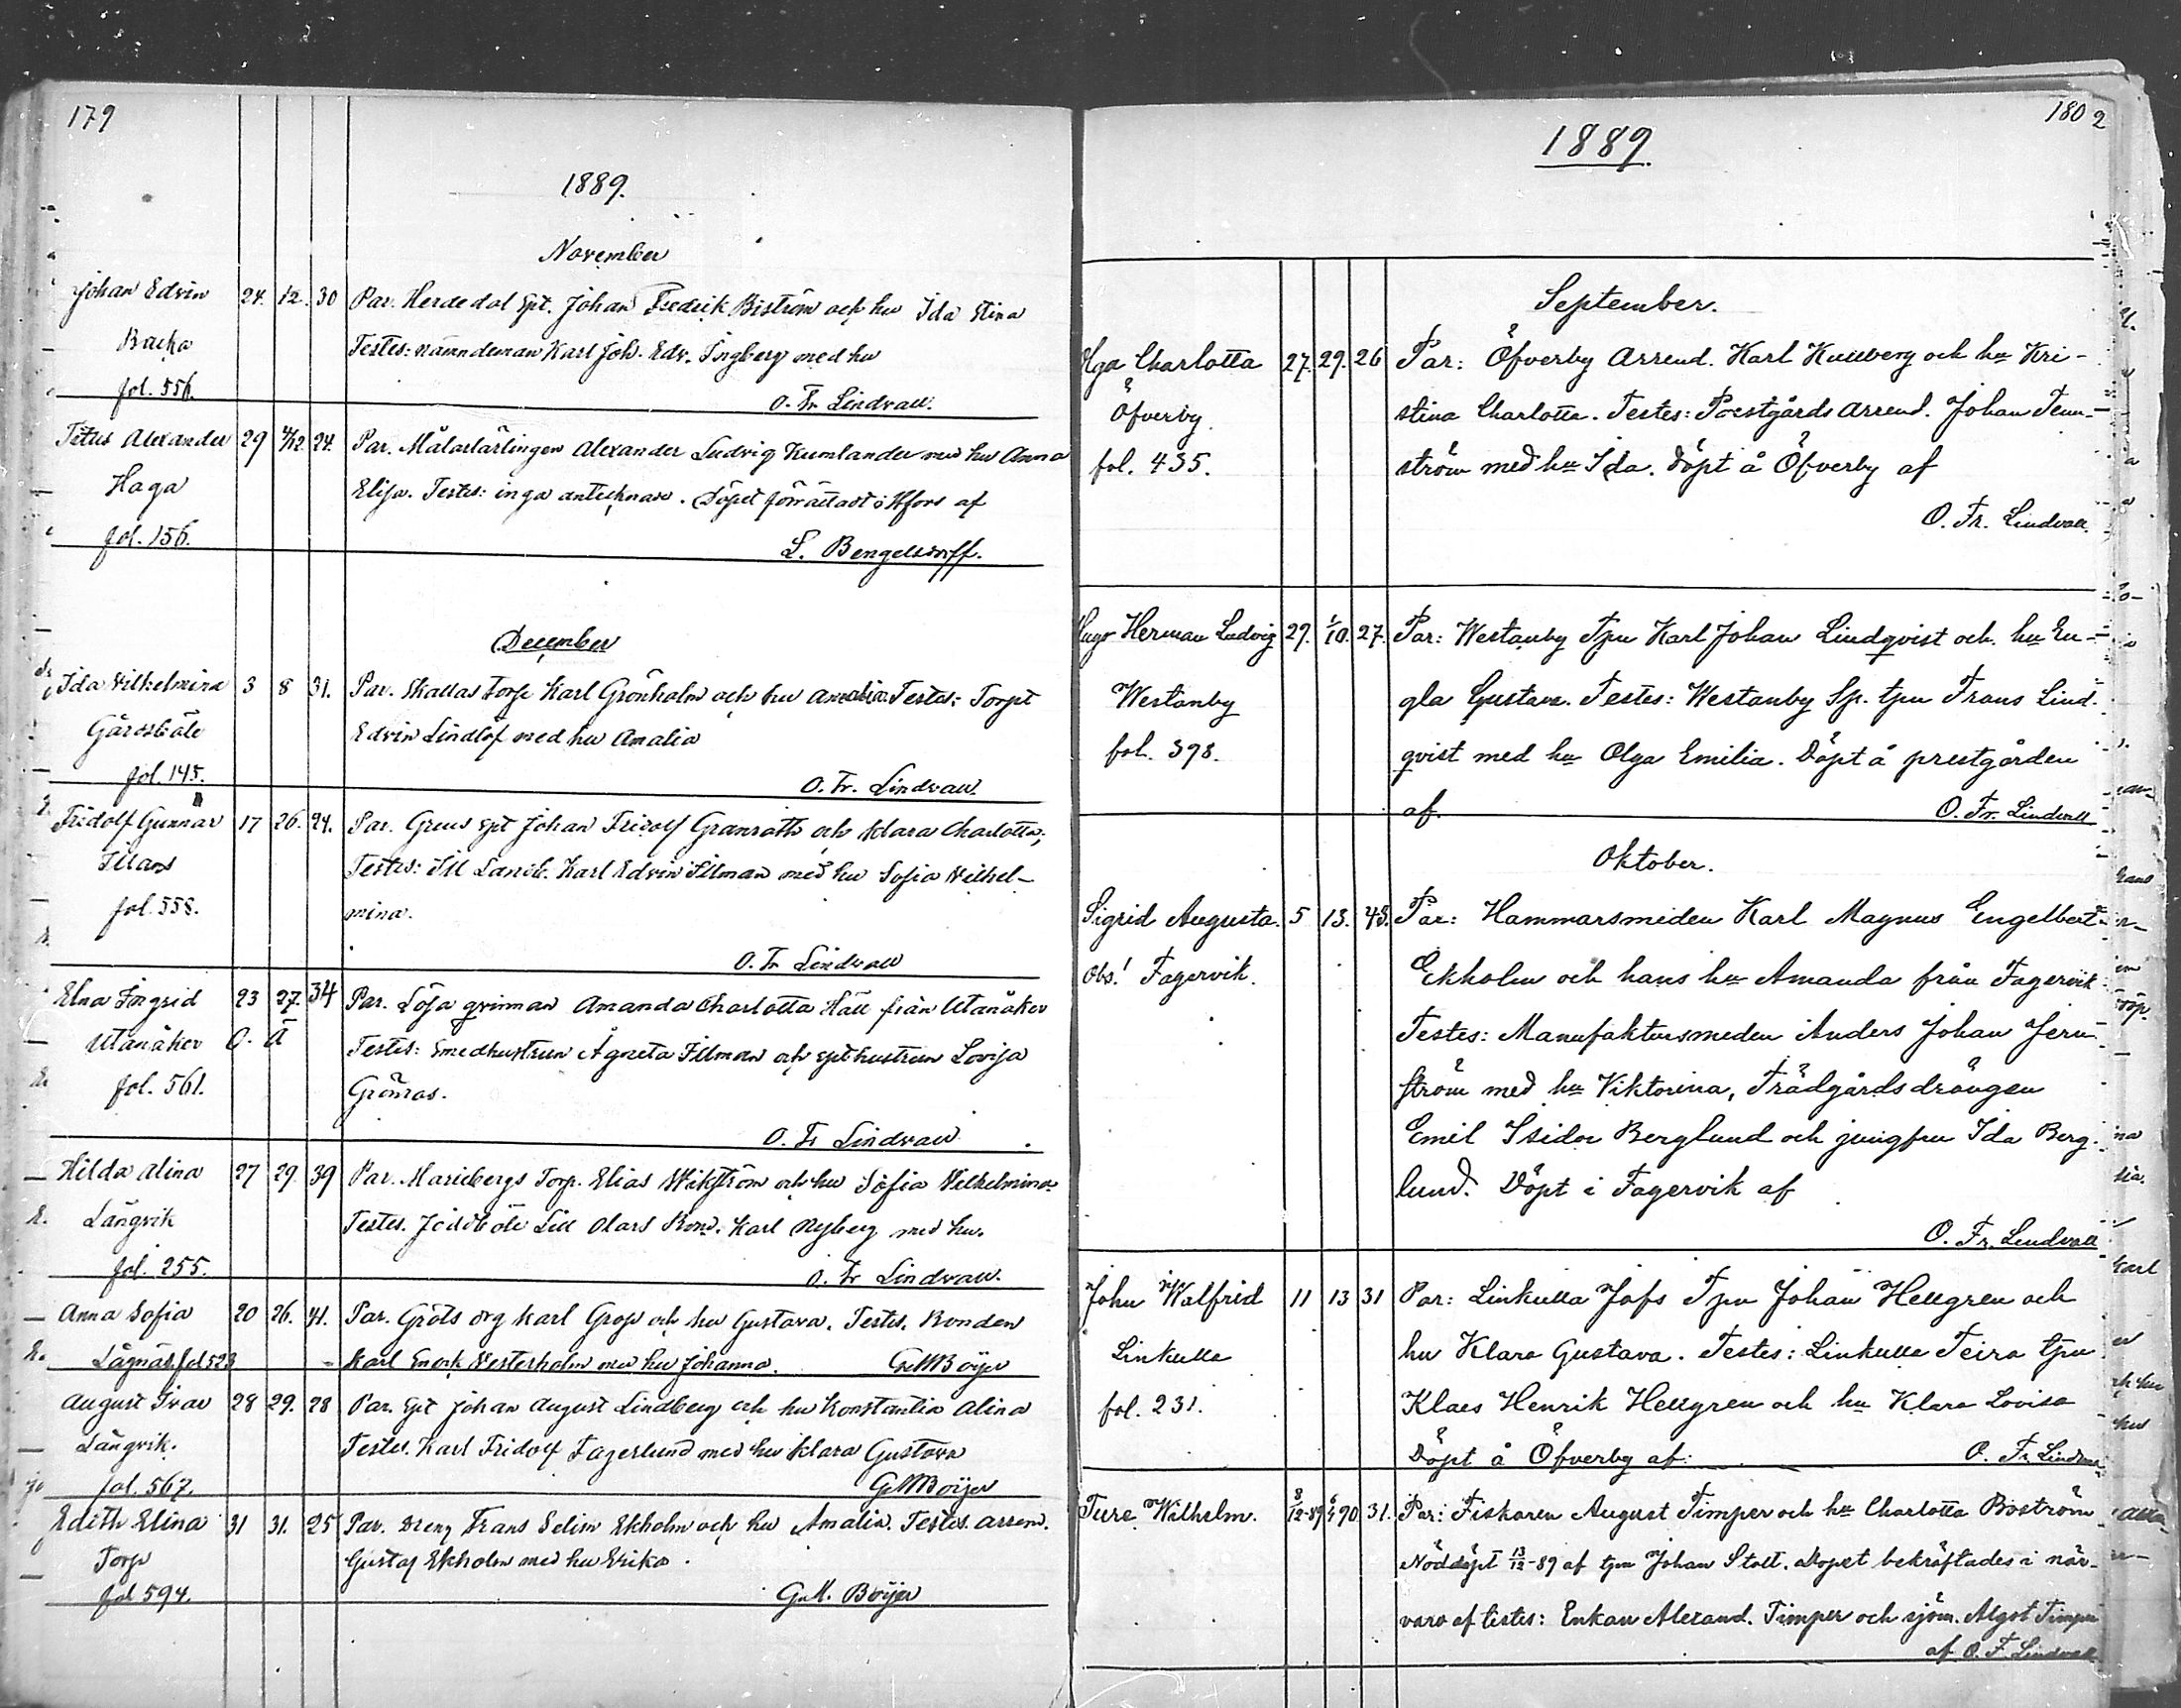 179
1889.
November
Johan Edvin 24. 12. 30 Par. Herdedal Spt. Johan Fredrik Biström och hu Ida Stina
Backa Testes: nämndeman Karl Joh. Edv. Ingberg med hu
fol. 556. O. Fr Lindvall.
Titus Alexander 29 4/12. 24. Par. Målarlärlingen Alexander Ludvig Kumlander med hu Anna
Haga Elisa. Testes: inga antecknade. Döpet förrättadt i Hfors af
fol. 156. L. Bengelsdorff.
December
Ida Vilhelmina 3 8 31. Par. Skallas Torp. Karl Grönholm och hu Amalia. Testes: Torpt
Gårdsböle Edvin Lindlöf med hu Amalia
fol. 145. O. Fr. Lindvall.
Fridolf Gunnar 17 26. 24. Par. Greus spt Johan Fridolf Granroth och Klara Charlotta;
Testes: Landb. Karl Edvin Filman med hu Sofia Vilhel-
fol. 558. mina.
O. Fr Lindvall
Elna Ingrid 23 27. 34 Par. Lösa qvinnan Amanda Charlotta Häll från Utanåker
Utanåker O. Ä Testes: Smedhustrun Ågneta Filman och spthustrun Lovisa
fol. 561. Grönros.
O. Fr Lindvall
Hilda Alina 27 29. 39 Par. Mariebergs Torp. Elias Wikström och hu Sofia Vilhelmina
Långvik Testes. Joddböle Lill Olars Bond. Karl Nyberg med hu.
fol. 255. O. Fr Lindvall.
Anna Sofia 20 26. 41. Par. Gröts drg Karl Grop och hu Gustava. Testes. Bonden
Lågnäs, fol 523 Karl Enock Westerholm med hu Johanna. G M Böijer
August Ivar 28 29. 28 Par. Spt Johan August Lindberg och hu Konstantia Alina
Långvik. Testes. Karl Fridolf Fagerlund med hu Klara Gustava
fol. 567. G M Böijer
Edith Elina 31 31. 25 Par. Dreng Frans Selim Ekholm och hu Amalia. Testes. Arrend.
Torp Gustaf Ekholm med hu Erika.
fol 594. G. M. Böijer
180 2
1889.
September.
Olga Charlotta 27. 29. 26 Par: Öfverby Arrend. Karl Kullberg och hu Kri-
Öfverby. stina Charlotta. Testes: Prestgårds arrend. Johan Tenn-
fol. 435. ström med hu Ida. Döpt å Öfverby af
O. Fr. Lindvall.
Hugo Herman Ludvig 29. 1/10. 27. Par: Westanby Tpn Karl Johan Lindqvist och hu En-
Westanby gla Gustava. Testes: Westanby Sp. tpn Frans Lind-
fol. 398. qvist med hu Olga Emilia. Döpt å prestgården
af O. Fr. Lindvall
Oktober.
Sigrid Augusta. 5 13. 43. Par: Hammarsmeden Karl Magnus Engelbert
Obs! Fagervik. Ekholm och hans hu Amanda från Fagervik
Testes: Manufaktursmeden Anders Johan Jern-
ström med hu Viktorina, Trädgårdsdrängen
Emil Isidor Berglund och jungfru Ida Berg-
lund. Döpt i Fagervik af
O. Fr. Lindvall
John Walfrid 11 13 31 Par: Linkulla Jofs Tpn Johan Hellgren och
Linkulla hu Klara Gustava. Testes: Linkulla Teira tpn
fol. 231. Klaes Henrik Hellgren och hu Klara Lovisa
Döpt å Öfverby af: O. Fr. Lindvall
Ture Wilhelm. 8/12-89 6/1 90 31. Par: Fiskaren August Timper och hu Charlotta Boström
Nöddöpt 13/12-89 af tpn Johan Stolt. Dopet bekräftades i när-
varo af testes: Enkan Alexand. Timper och sjöm. Algot Timper
af O. F. Lindvall